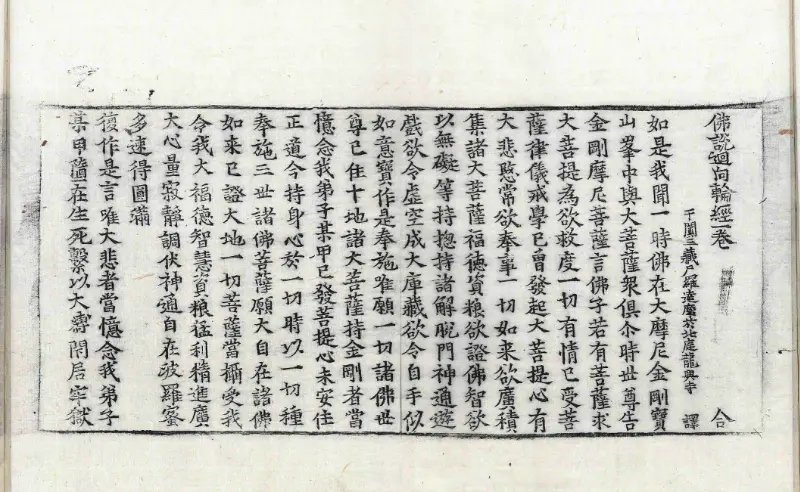 佛説迴向輪經一卷 合
于闐三藏尸羅達摩於北庭龍興寺 譯
如是我聞一時佛在大摩尼金剛寶
山峯中與大菩薩衆俱尒時世尊告
金剛摩尼菩薩言佛子若有菩薩求
大菩提為欲救度一切有情已受菩
薩律儀戒學已曾發起大菩提心有
大悲愍常欲奉事一切如来欲廣積
集諸大菩薩福德資粮欲證佛智欲
以無礙等持揔持諸解脫門神通遊
戲欲令虛空成大庫藏欲令自手似
如意寶作是奉施唯願一切諸佛世
尊已住十地諸大菩薩持金剛者當
憶念我弟子某甲已發菩提心未安住
正道今持身心於一切時以一切種
奉施三世諸佛菩薩願大自在諸佛
如来已證大地一切菩薩當攝受我
令我大福德智慧資粮猛利精進廣
大心量寂靜調伏神通自在波羅蜜
多速得圓滿
復作是言唯大悲者當憶念我弟子
某甲墮在生死繫以大 閇居牢獄